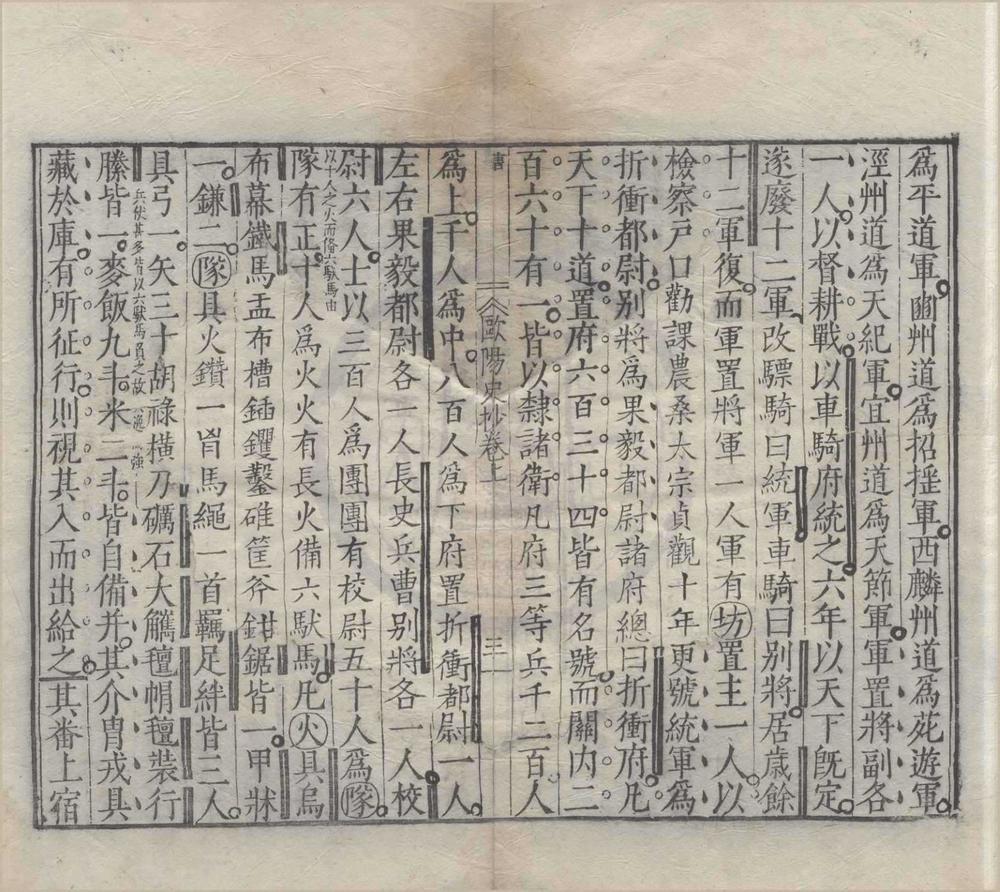 爲平道軍豳州道爲招揺軍西麟州道爲苑遊軍
涇州道爲天紀軍宜州道爲天節軍軍置將副各
一人以督耕戰以車騎府統之六年以天下旣定
遂廢十二軍改驃騎曰統軍車騎曰別將居歲餘
十二軍復而軍置將軍一人軍有坊置主一人以
檢察戸口勸課農桑太宗貞觀十年更號統軍爲
折衝都尉別將爲果毅都尉諸府總曰折衝府凡
天下十道置府六百三十四皆有名號而關内二
百六十有一皆以隸諸衛凡府三等兵千二百人
唐
歐陽史抄卷上
三
爲上千人爲中八百人爲下府置折衝都尉一人
左右果毅都尉各一人長史兵曹別將各一人校
尉六人士以三百人爲團團有校尉五十人爲隊
以十人之火而僃六馱馬由
隊有正十人爲火火有長火備六馱馬凡火具烏
布幕鐵馬盂布槽鍤钁鑿碓筐斧鉗鋸皆一甲牀
一鎌二隊具火鑽一胷馬繩一首羈足絆皆三人
具弓一矢三十胡祿横刀礪石大觿氊㡌氊裝行
兵伏甚多皆以六馱馬負之故
強
縢皆一麥飯九斗米二斗皆自備并其介冑戎具
藏於庫有所征行則視其入而出給之其番上宿